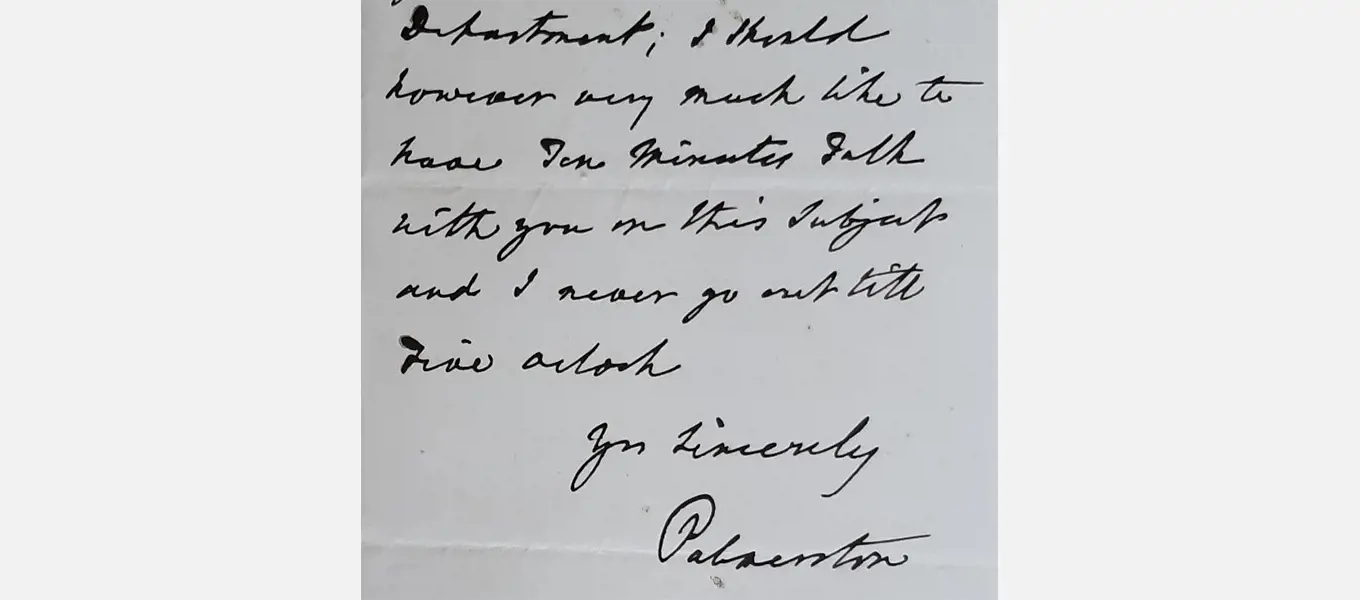 Department; I should
however very much like to
have Ten Minutes Talk
with you on this Subject
and I never go out till
Five oclock
Yrs Sincerely
Palmerston